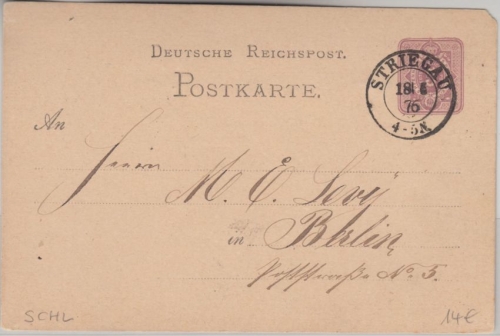 DEUTSCHE REICHSPOST.
POSTKARTE.
STRIEGAU
18 6
76
4-5N.
An
Herrn
M. E. Levy
in Berlin,
Poststraße No. 5.
SCHL
14€